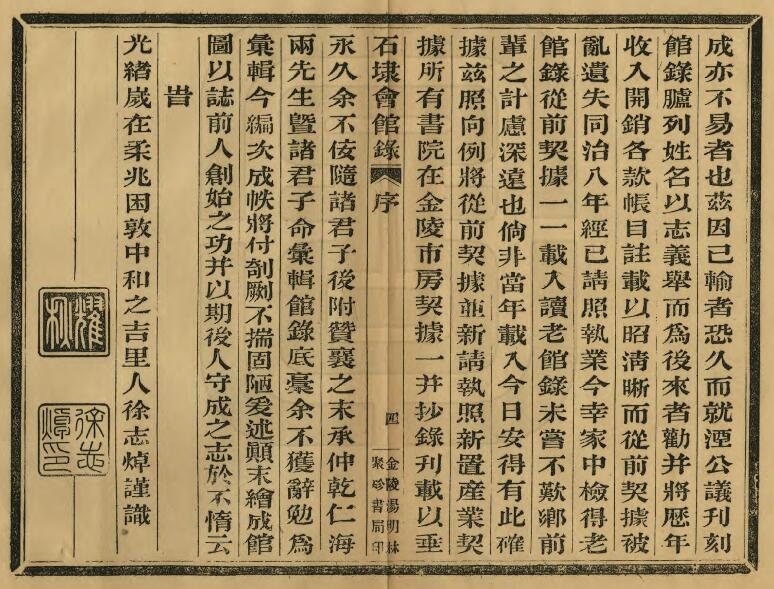 成亦不易者也茲因已輸者恐久而就湮公議刊刻
館錄臚列姓名以志義舉而爲後來者勸并將歷年
收入開銷各款帳目註載以昭淸晰而從前契據被
亂遺失同治八年經已請照執業今幸家中檢得老
館錄從前契據一一載入讀老館錄未嘗不歎鄕前
輩之計慮深遠也倘非當年載入今日安得有此確
據茲照向例將從前契據並新請執照新置產業契
據所有書院在金陵市房契據一并抄錄刊載以垂
石埭會館錄 序 四
金陵湯明林
聚珍書局印
永久余不佞隨諸君子後附贊襄之末承仲乾仁海
兩先生暨諸君子命彙輯館錄底稾余不獲辭勉爲
彙輯今編次成帙將付剞劂不揣固陋爰述顚末繪成館
圖以誌前人創始之功并以期後人守成之志於不惰云
旹
光緒歲在柔兆困敦中和之吉里人徐志焯謹識
耀秋
徐志焯印